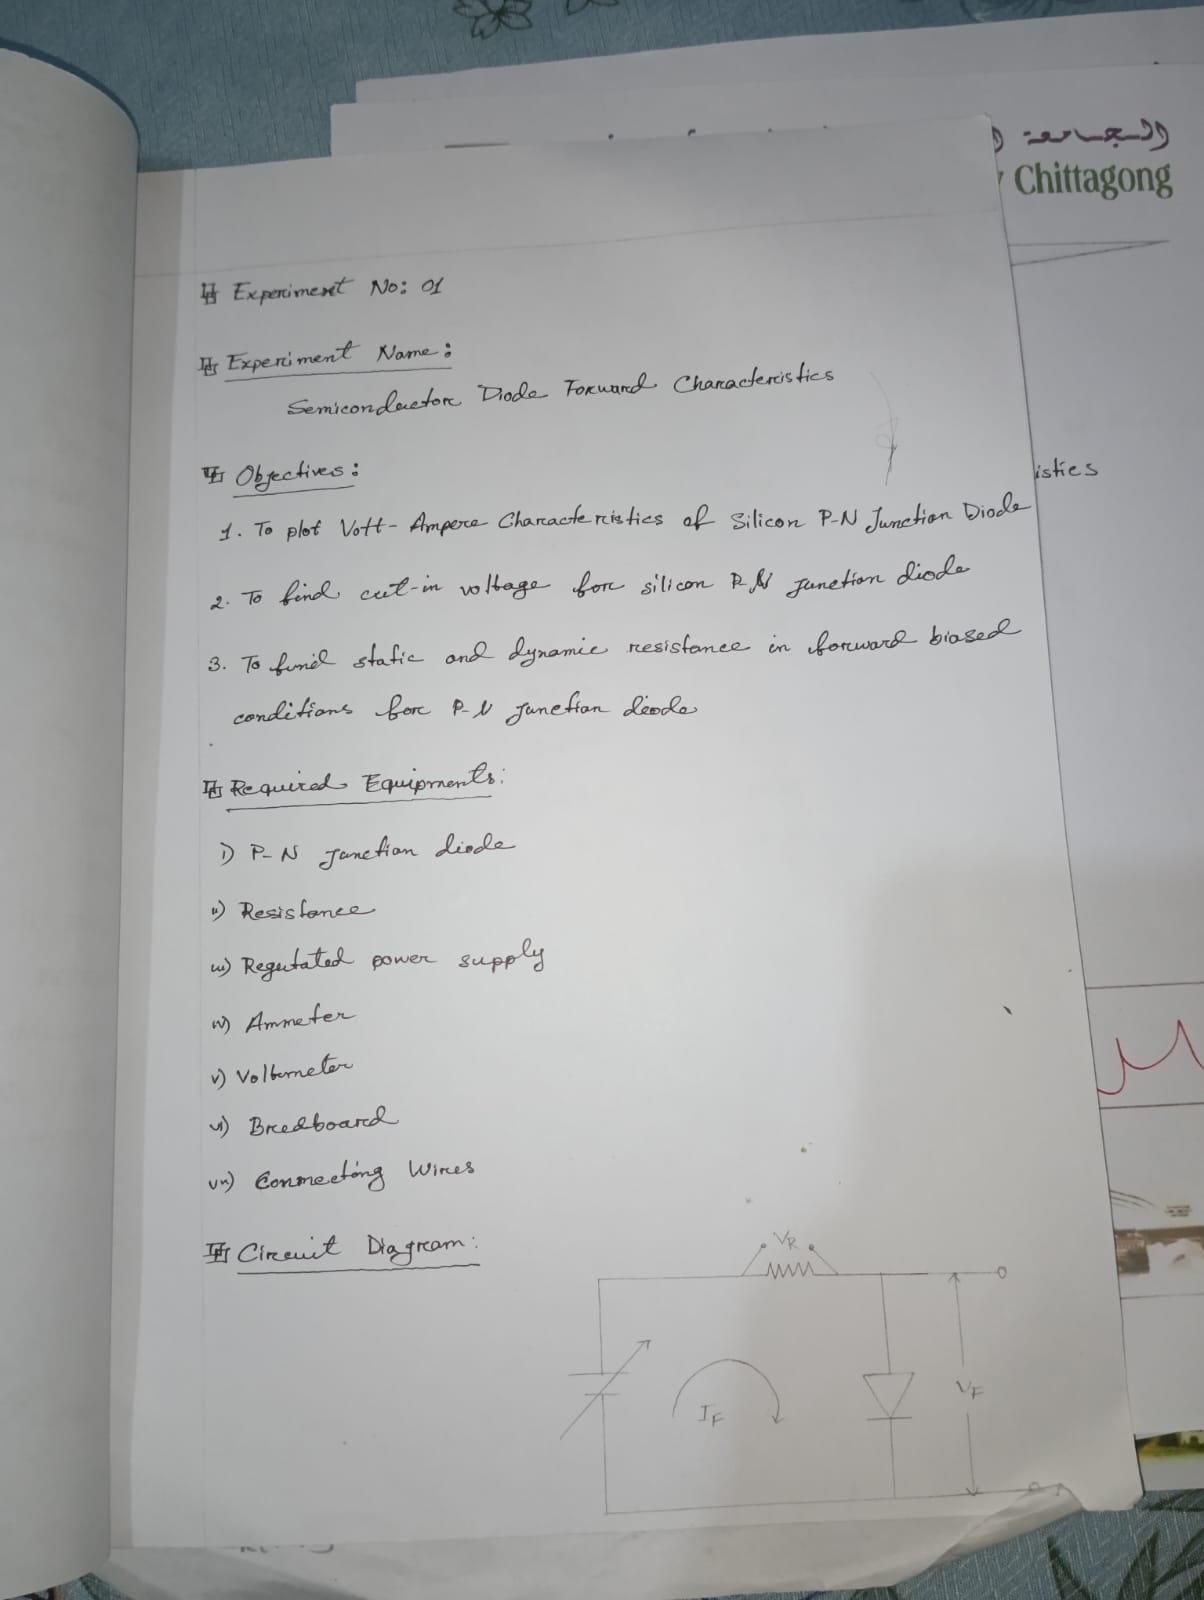 الجامعة
Chittagong
Experiment No: 01
Experiment Name:
Semiconductor Diode Forward Characteristics
Objectives:
istics
1. To plot Vott-Ampere Characteristics of Silicon P-N Junction Diode
2. To find cut-in voltage for silicon P-N junction diode
3. To find static and dynamic resistance in forward biased
conditions for P-N junction diode
Required Equipments:
i) P-N junction diode
ii) Resistance
iii) Regutated power supply
iv) Ammeter
v) Voltometer
vi) Bredboard
vii) Connecting Wires
Circuit Diagram:
VR
IF
VF